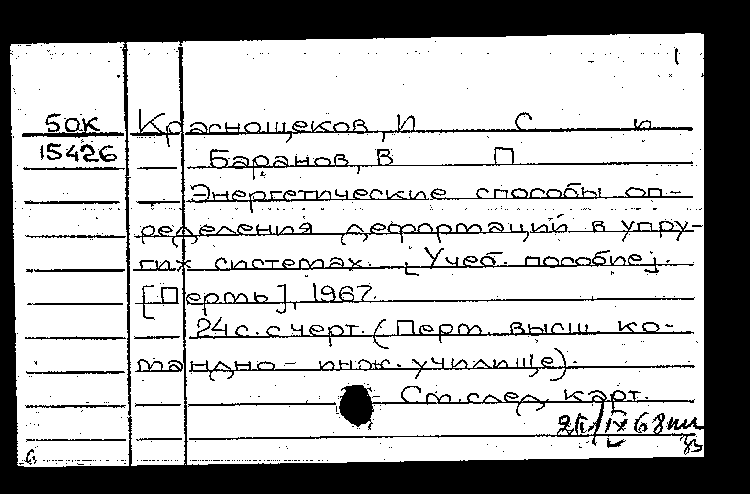 1
50К Краснощеков, И С и
15426 Баранов, В П
Энергетические способы оп-
ределения деформаций в упру-
гих системах. [Учеб. пособие].
[Пермь], 1967.
24 с. с черт. (Перм. высш. ко-
мандно-инж. училище).
См. след. карт.
IX 68